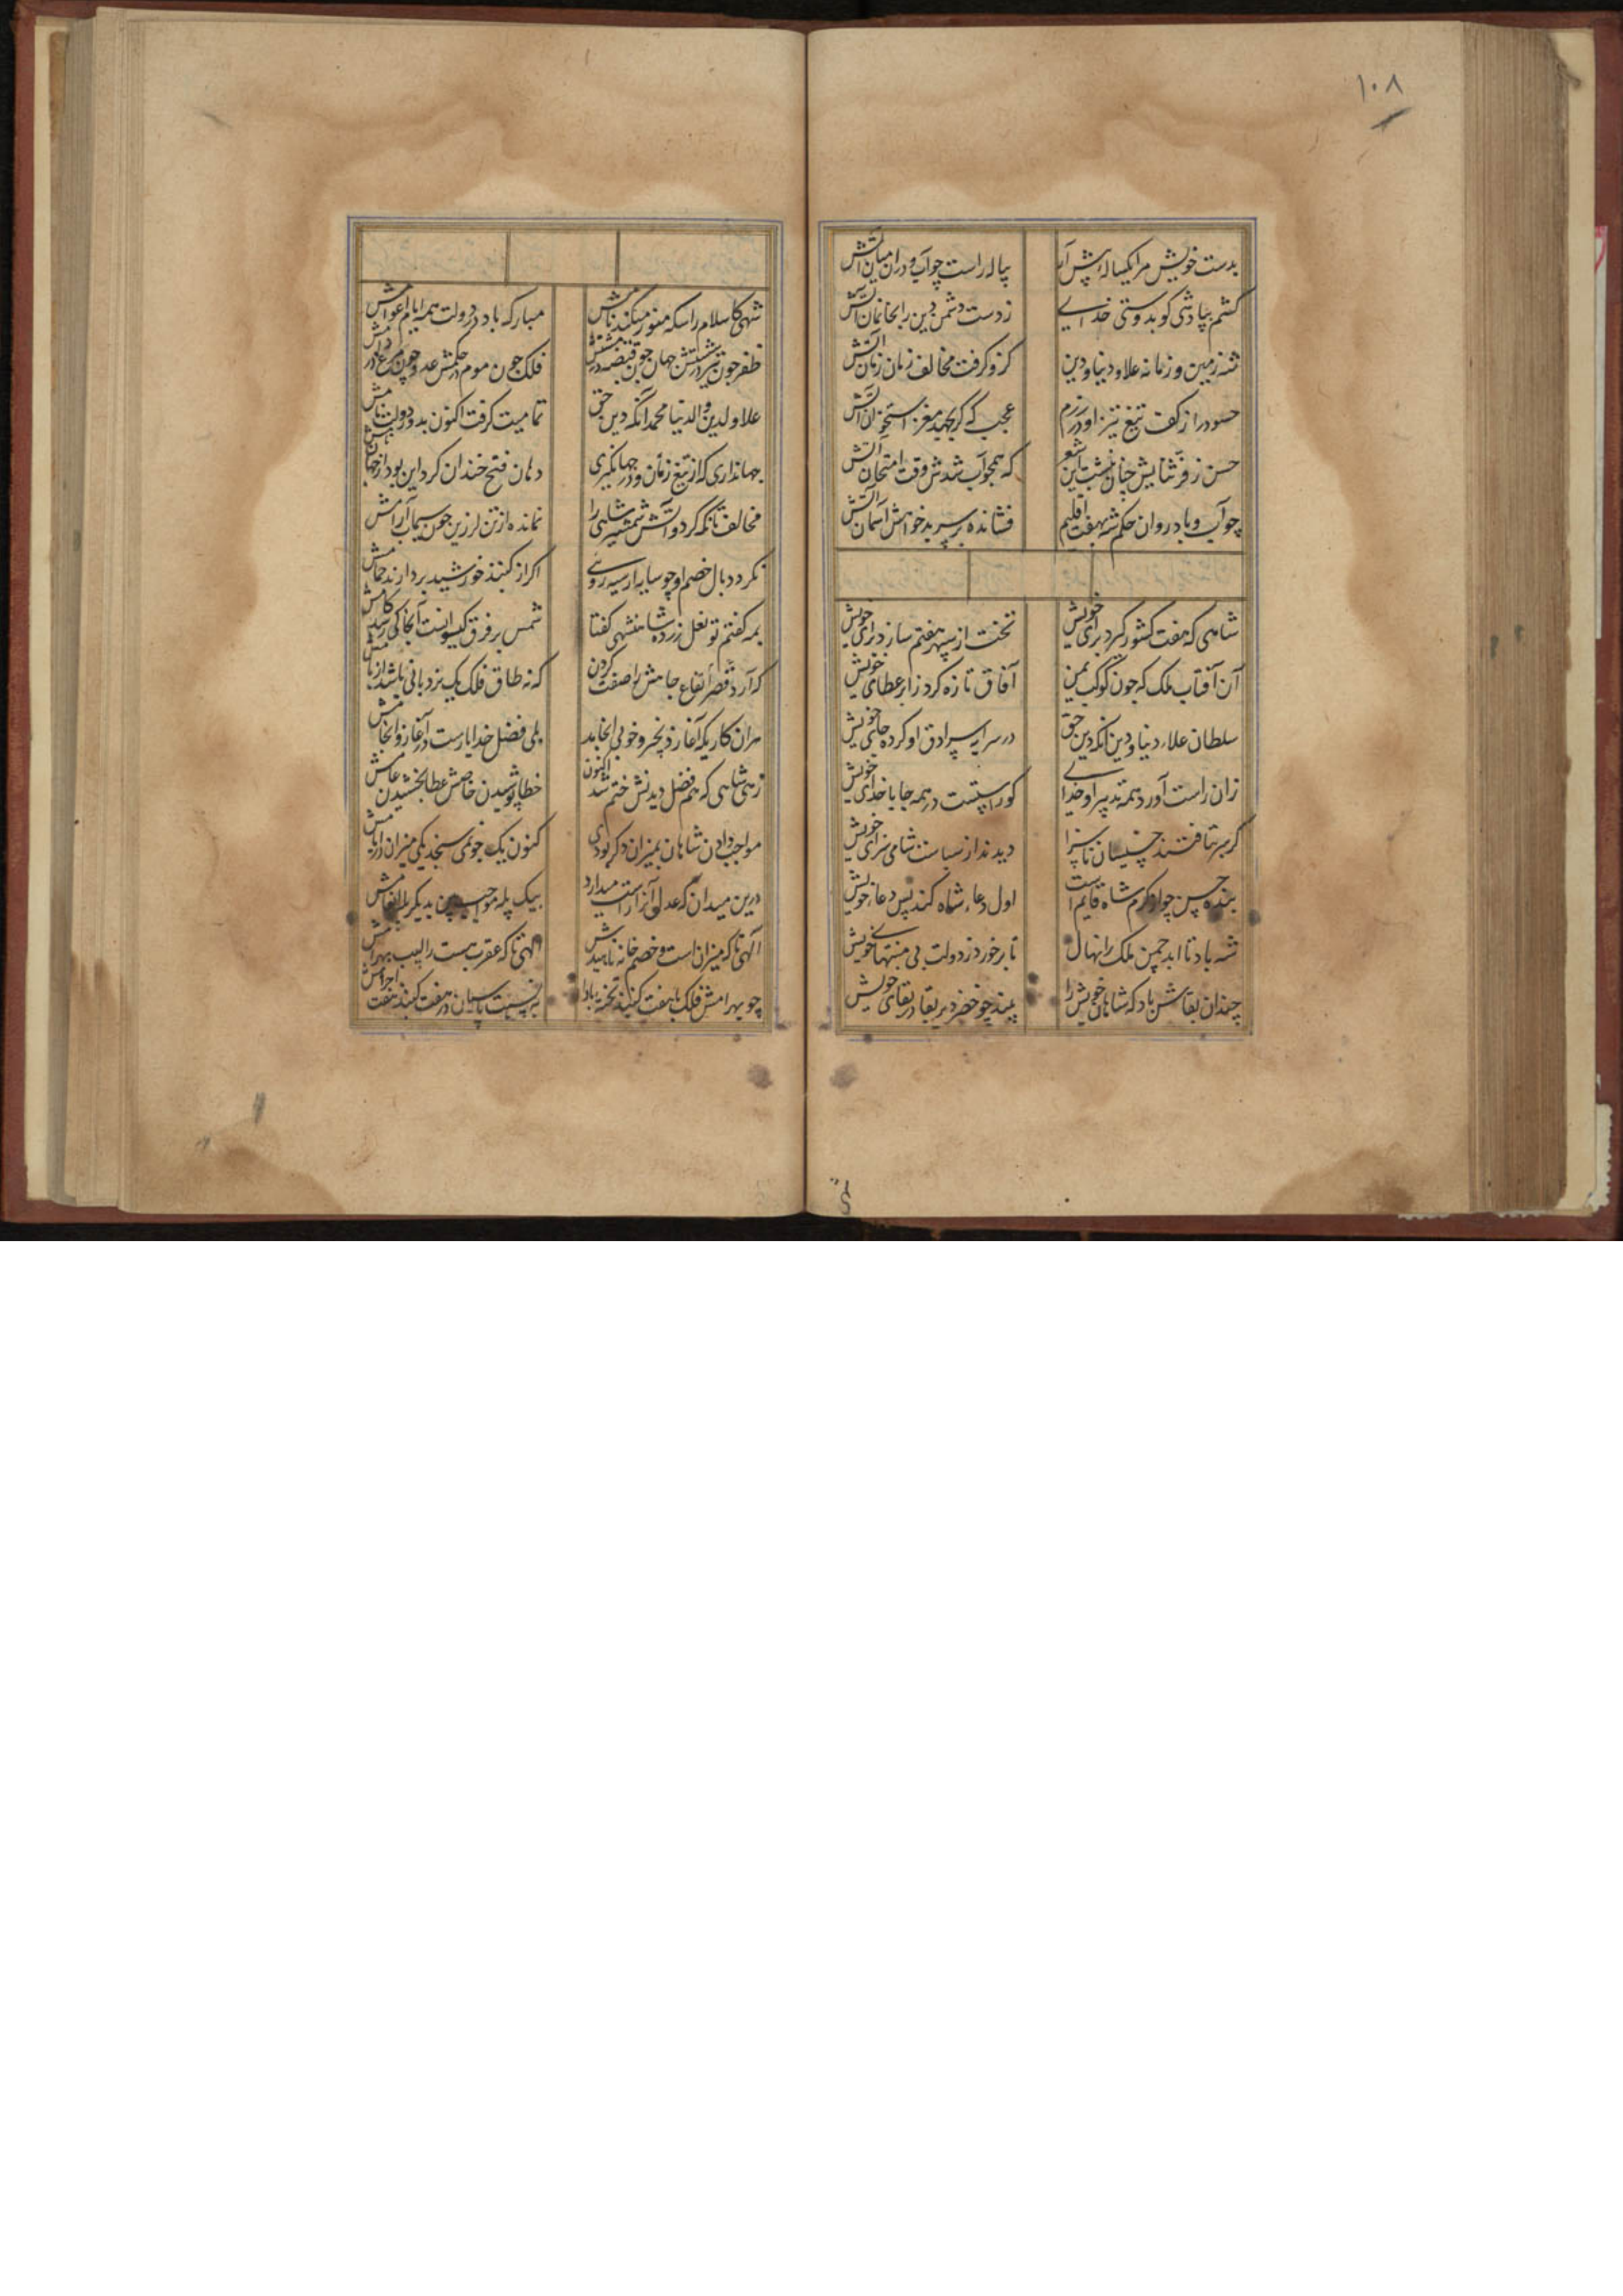 ۱۰۸
بدست خویش مرا یکپیاله پیش آر
پیاله راست چو آب و در آن میان آتش
کشم بیاد شهی کو بدوستی خدای
زد است دشمن دین را بخانمان آتش
شه زمین و زمانه علاء دنیا و دین
کزو گرفت مخالف زمان زمان آتش
حسود را ز کف تیغ تیز او در رزم
عجب که گر بجهد مغز استخوان آتش
حسن ز فر ثنایش چنان نبشت این شعر
که همچو آب شدش وقت امتحان آتش
چو آب و باد روان حکم شه بهفت اقلیم
فشانده بر سر بدخواهش آسمان آتش
شاهی که هفت کشور گیرد برای خویش
تختت از سپهر هفتم سازد برای خویش
آن آفتاب ملک که چون کوکب یمن
آفاق تازه کرد ز ابر عطای خویش
سلطان علاء دنیا و دین آنکه دین حق
در سرایه سرادق او کرده جای خویش
زان راست آورد همه تدبیر او خدای
کو راستست در همه جا با خدای خویش
گر سر بتافتند خسیسان ناسزا
دیدند از سیاست شاهی سزای خویش
بنده حسن چو از کرم شاه قایم است
اول دعاء شاه کند پس دعاء خویش
شه باد تا ابد چمن ملک را نهال
تا بر خورد ز دولت بی منتهای خویش
چندان بقاش باد که شاهان خویش را
بیند چو خضر دیر بقا در بقای خویش
شهی کاسلام را سکه منور میکند نامش
مبارک باد در دولت همه ایام و اعوامش
ظفر چون تیر در شستش جهان چون قبضه در مشتش
فلک چون موم در حکمش عدو چون مرغ در دامش
علاء الدین و الدنیا محمد آنکه دین حق
تمامیت گرفت اکنون بدو دولت نامش
جهانداری که از تیغ زمان و در جهانگیری
دهان فتح خندان کرد این بود از جهان
مخالف تانکه کرد و آتش شمشیر شاهی را
نمانده از تن لرزین چون سیماب آرامش
نکردد بال خصم او چو سایه از سیه رویی
اگر از گنبد خورشید بردارند حمامش
بمه گفتم تو نعل زرده شاهنشهی گفتا
شمس بر فرق کیوانست آنجا کی رسد کامش
که آرد قصر ارتفاع جاهش را صفت کردن
که نه طاق فلک یک نردبانی باشد از بامش
هر آن کاریکه آغازد بخیر و خوبی انجامد
بلی فضل خدا یارست در آغاز و انجامش
زهی شاهی که هم فضل دینش ختم شد اکنون
خطا پوشیدن خاصش عطا بخشیدن عامش
مواجب دادن شاهان بمیزان دگر بودی
کنون یک جو نمی سنجد یکی میزان در ایامش
درین میدان که عدل آنرا راست میدارد
بیک پله مواجب بین بدیگر پله انعامش
الهی تا که میزان است و خصم خانه ناهیدش
الهی تا که عقرب هست را لیب بهرامش
چو بهرامش فلک با هفت گنبد تخته بادا